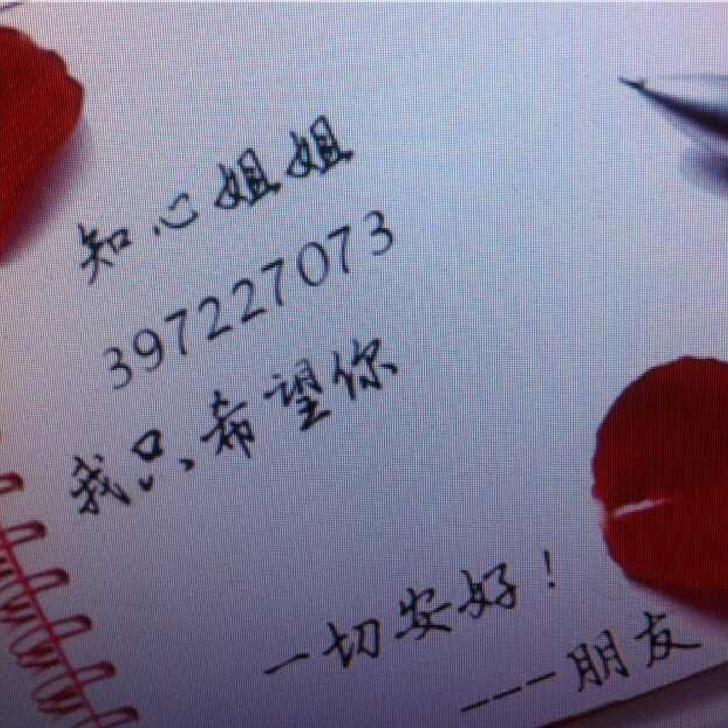 知心姐姐
397227073
我只希望你
一切安好！
---朋友